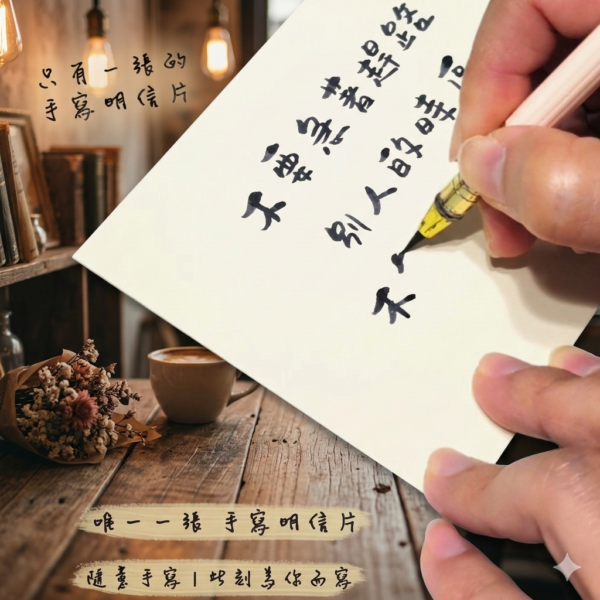 只有一張的
手寫明信片
不要急著趕路
別人的時
不
唯一一張手寫明信片
隨意手寫|此刻為你而寫